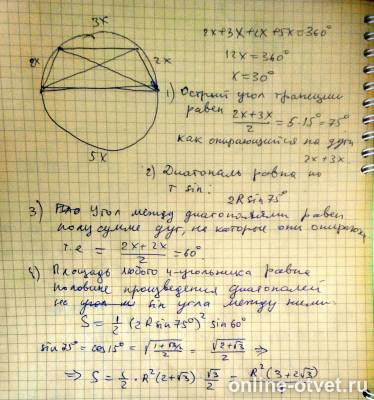 3x
2x
2x
5x
2x+3x+2x+5x=360°
12x=360°
x=30°
1) Острый угол трапеции
равен (2x+3x)/2 = 5·15°=75°
как опирающийся на дуги
2x+3x
2) Диагональ равна по
т sin:
2R sin 75°
3) Угол между диагоналями равен
полусумме дуг, на которые они опираются
т.е = (2x+2x)/2 = 60°
4) Площадь любого 4-угольника равна
половине произведения диагоналей
на sin угла между ними.
S = 1/2 (2R sin 75°)² sin 60°
sin 75° = cos 15° = √((1+√3/2)/2) = √(2+√3)/2 ⇒
⇒ S = 1/2 · R²(2+√3) · √3/2 = R²(3+2√3)
online-otvet.ru